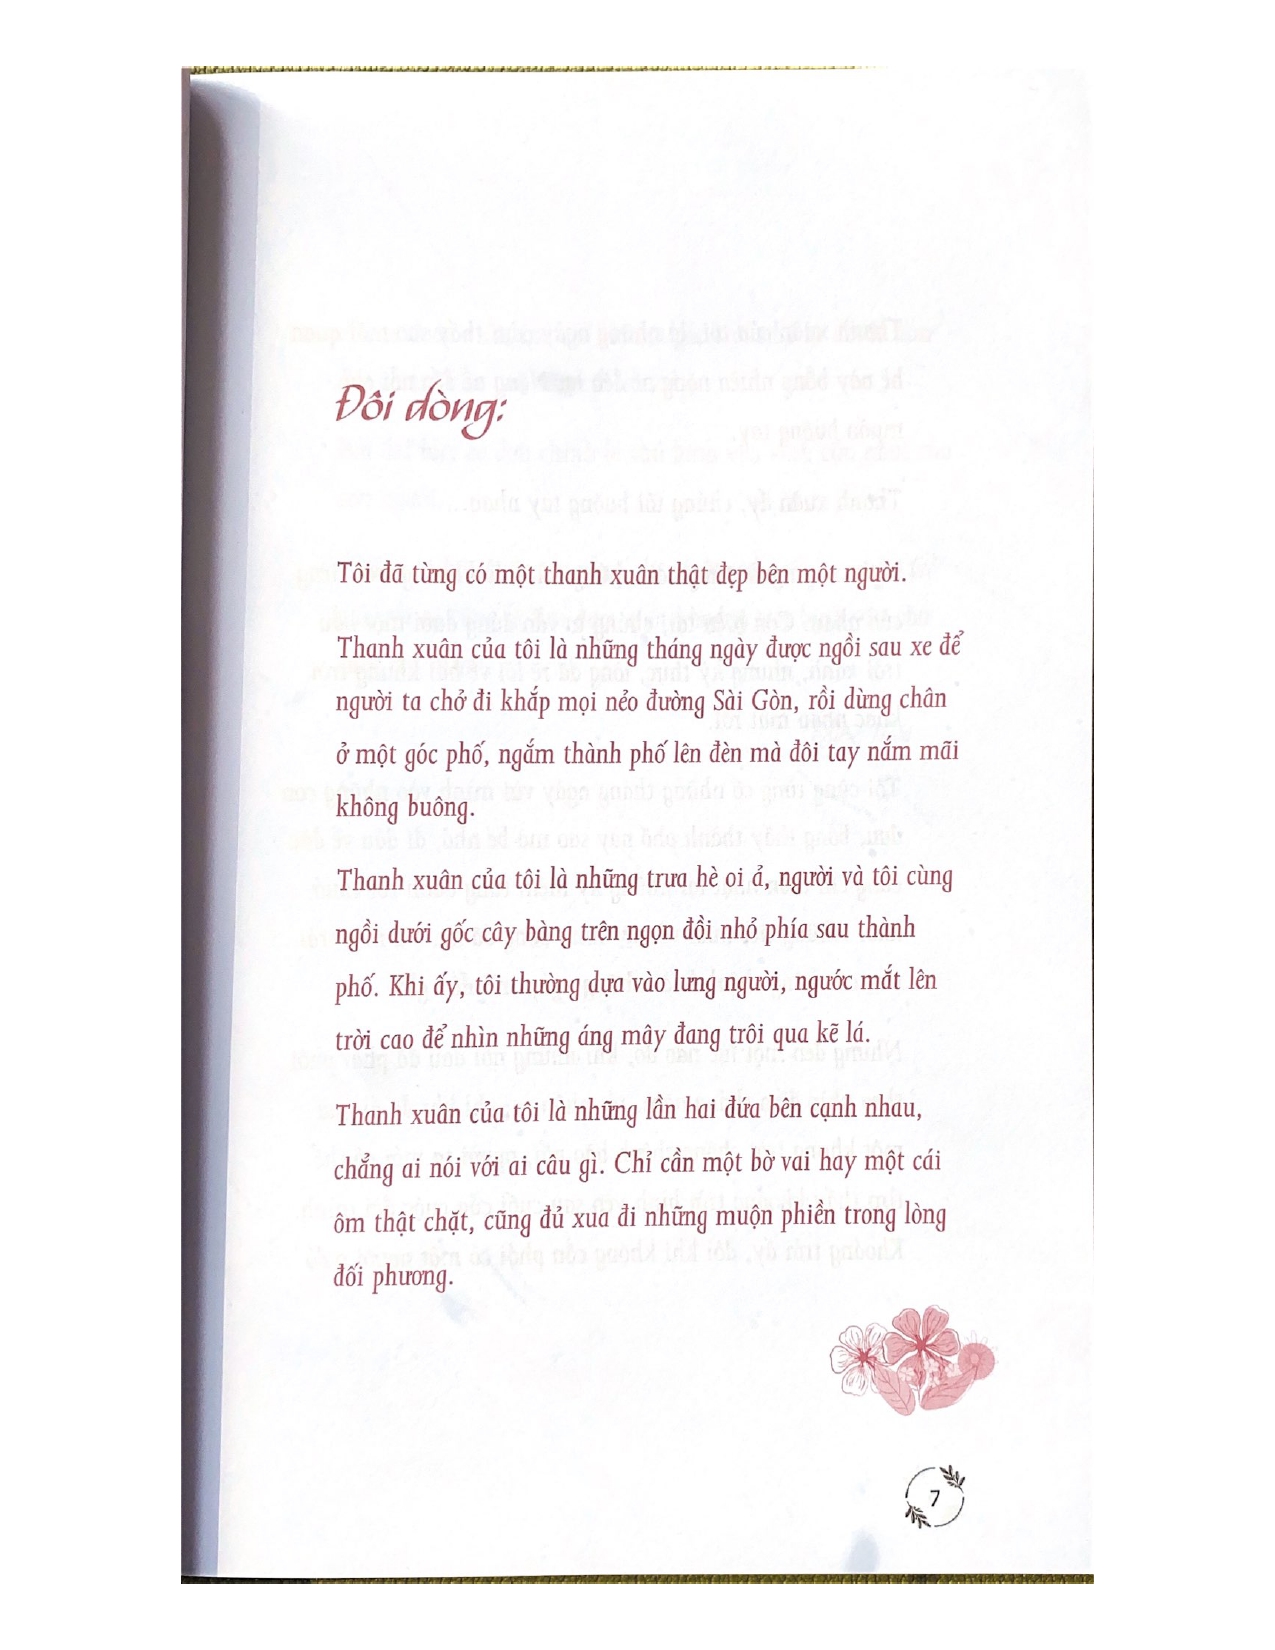 Đôi dòng:
Tôi đã từng có một thanh xuân thật đẹp bên một người.
Thanh xuân của tôi là những tháng ngày được ngồi sau xe để
người ta chở đi khắp mọi nẻo đường Sài Gòn, rồi dừng chân
ở một góc phố, ngắm thành phố lên đèn mà đôi tay nắm mãi
không buông.
Thanh xuân của tôi là những trưa hè oi ả, người và tôi cùng
ngồi dưới gốc cây bàng trên ngọn đồi nhỏ phía sau thành
phố. Khi ấy, tôi thường dựa vào lưng người, ngước mắt lên
trời cao để nhìn những áng mây đang trôi qua kẽ lá.
Thanh xuân của tôi là những lần hai đứa bên cạnh nhau,
chẳng ai nói với ai câu gì. Chỉ cần một bờ vai hay một cái
ôm thật chặt, cũng đủ xua đi những muộn phiền trong lòng
đối phương.
7